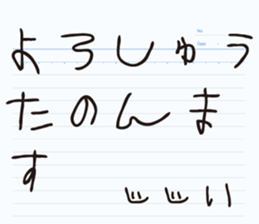 よろしゅう
たのんま
す
じじい